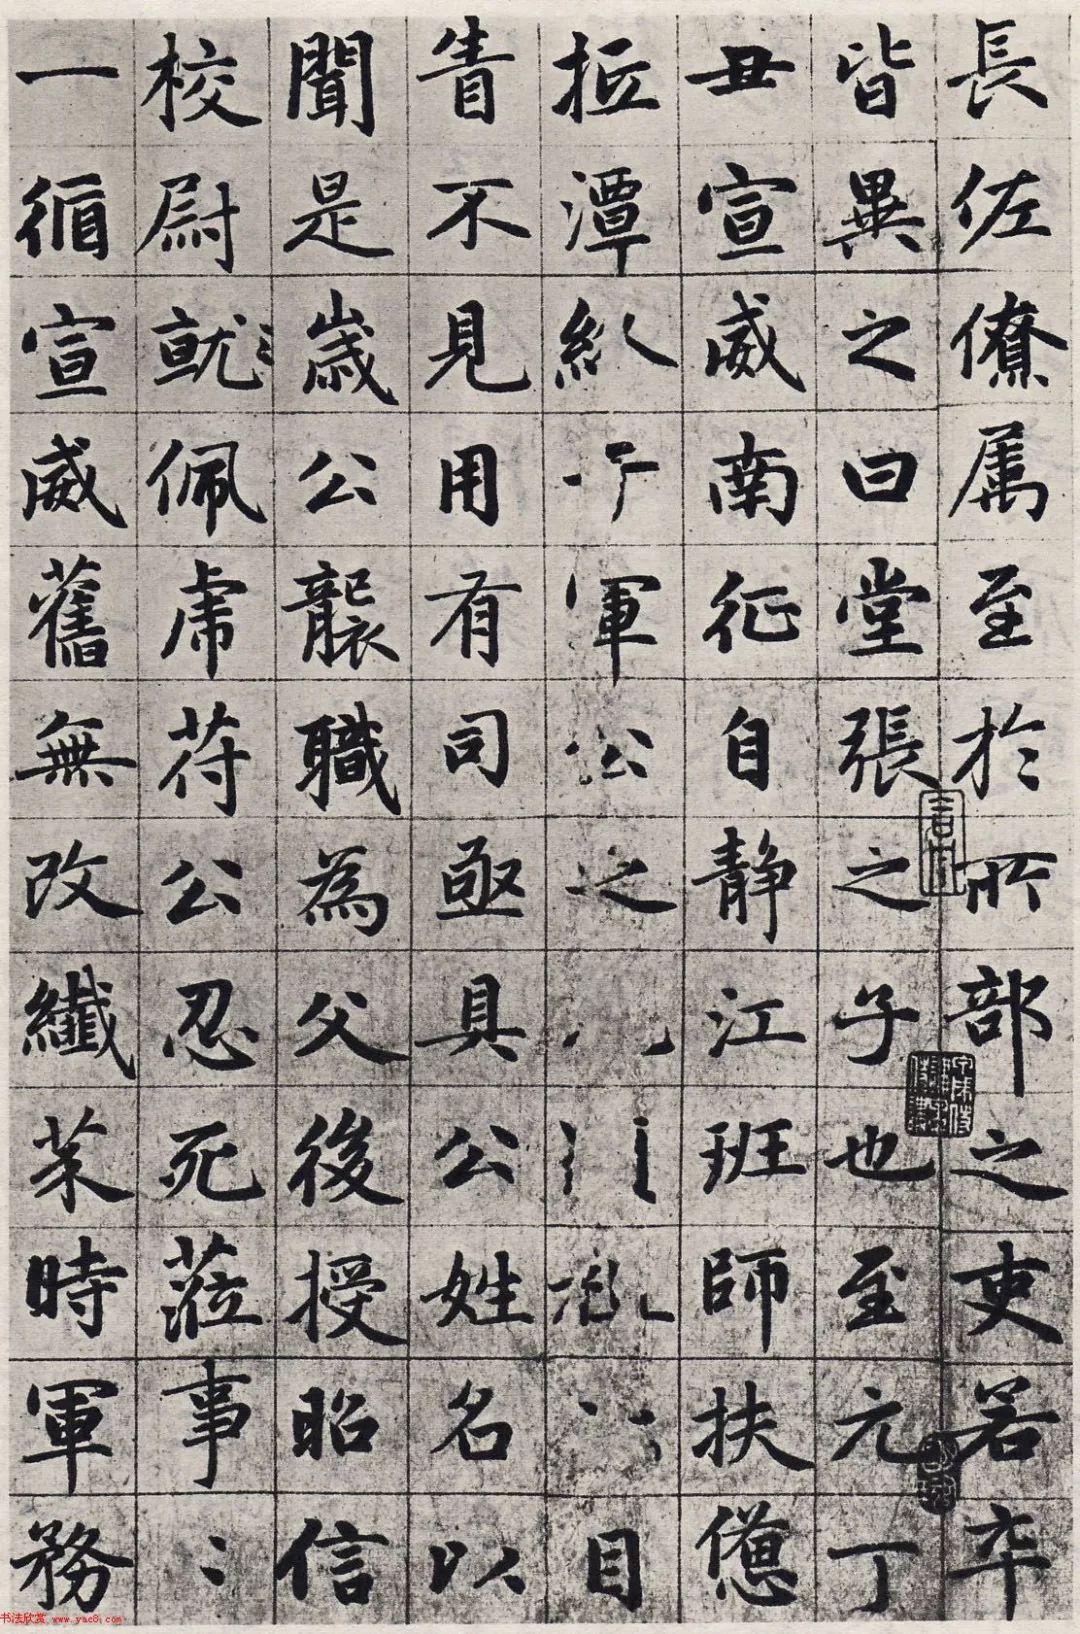 長佐僚属至於所部之吏若卒
皆異之曰堂張之子也至元丁
丑宣威南征自静江班師扶憊
拉潭 軍公之 目
眚不見用有司亟具公姓名以
聞是歳公襲職為父後授昭信
校尉就佩虎苻公忍死蒞事〻
一循宣威舊無改纎芥時軍務
书法欣赏 www.yac8.com